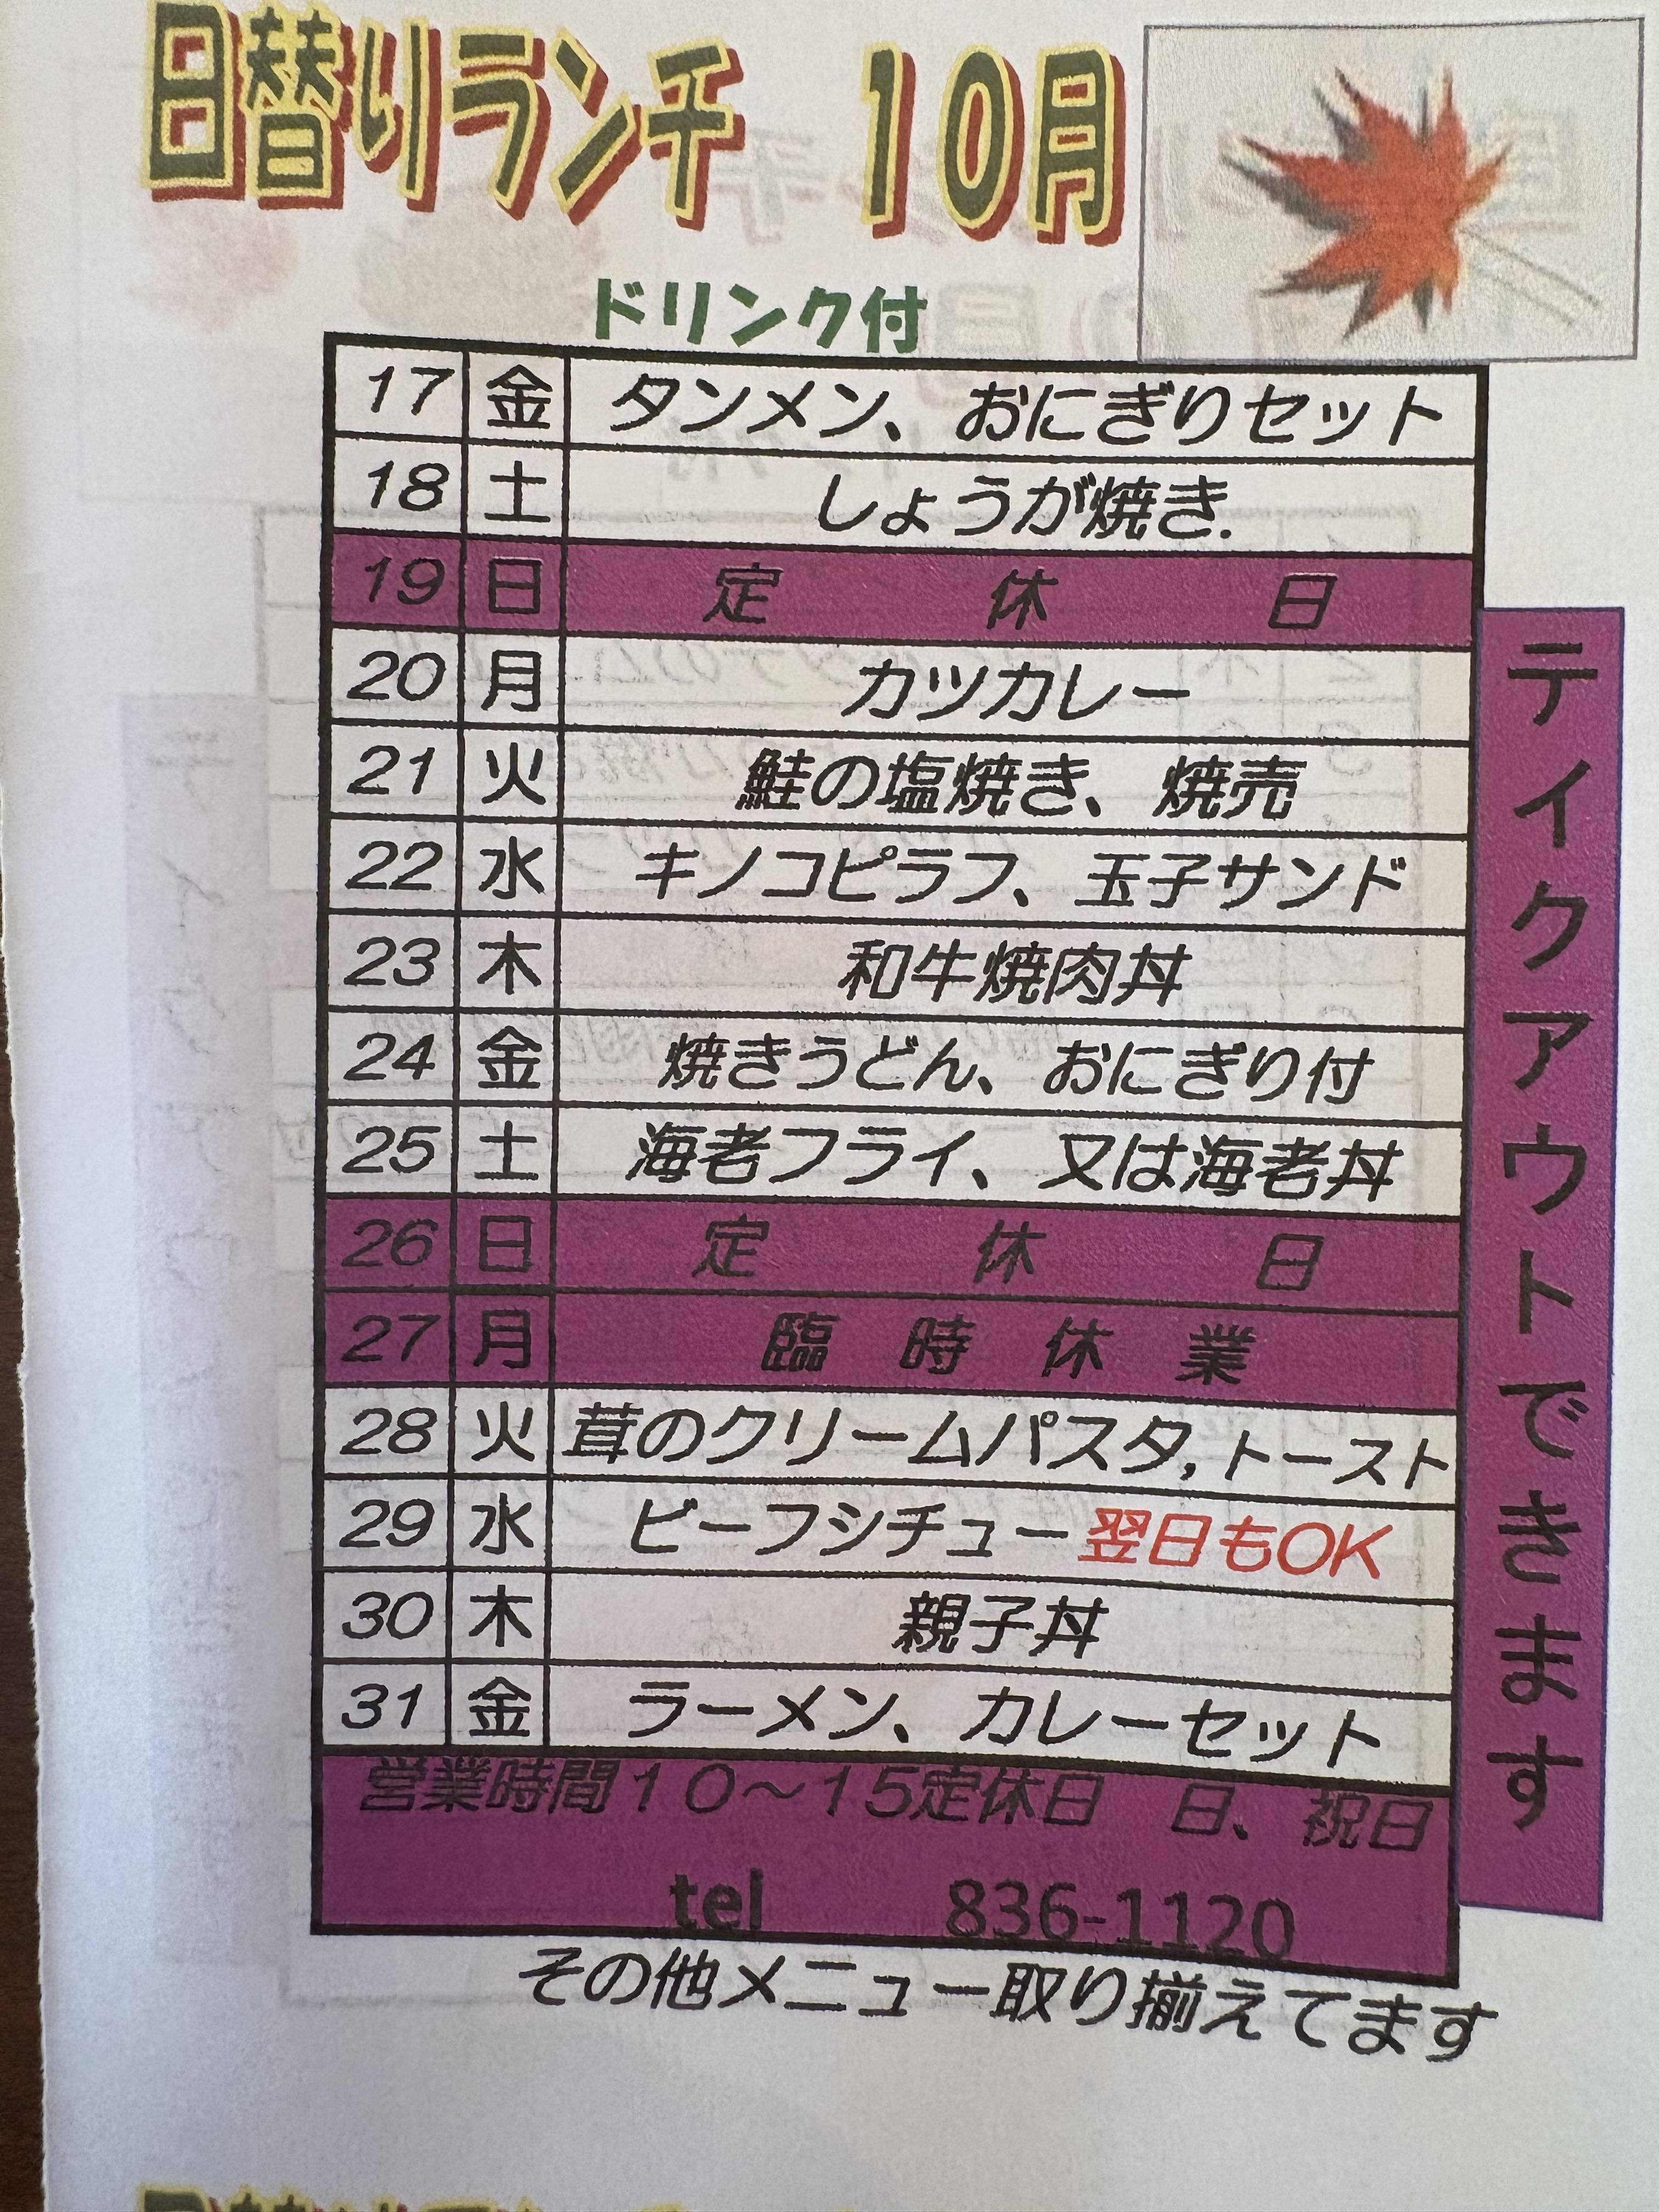 日替りランチ 10月
ドリンク付
17 金 タンメン、おにぎりセット
18 土 しょうが焼き.
19 日 定休日
20 月 カツカレー
21 火 鮭の塩焼き、焼売
22 水 キノコピラフ、玉子サンド
23 木 和牛焼肉丼
24 金 焼きうどん、おにぎり付
25 土 海老フライ、又は海老丼
26 日 定休日
27 月 臨時休業
28 火 茸のクリームパスタ,トースト
29 水 ビーフシチュー翌日もOK
30 木 親子丼
31 金 ラーメン、カレーセット
営業時間10～15定休日 日、祝日
tel 836-1120
テイクアウトできます
その他メニュー取り揃えてます